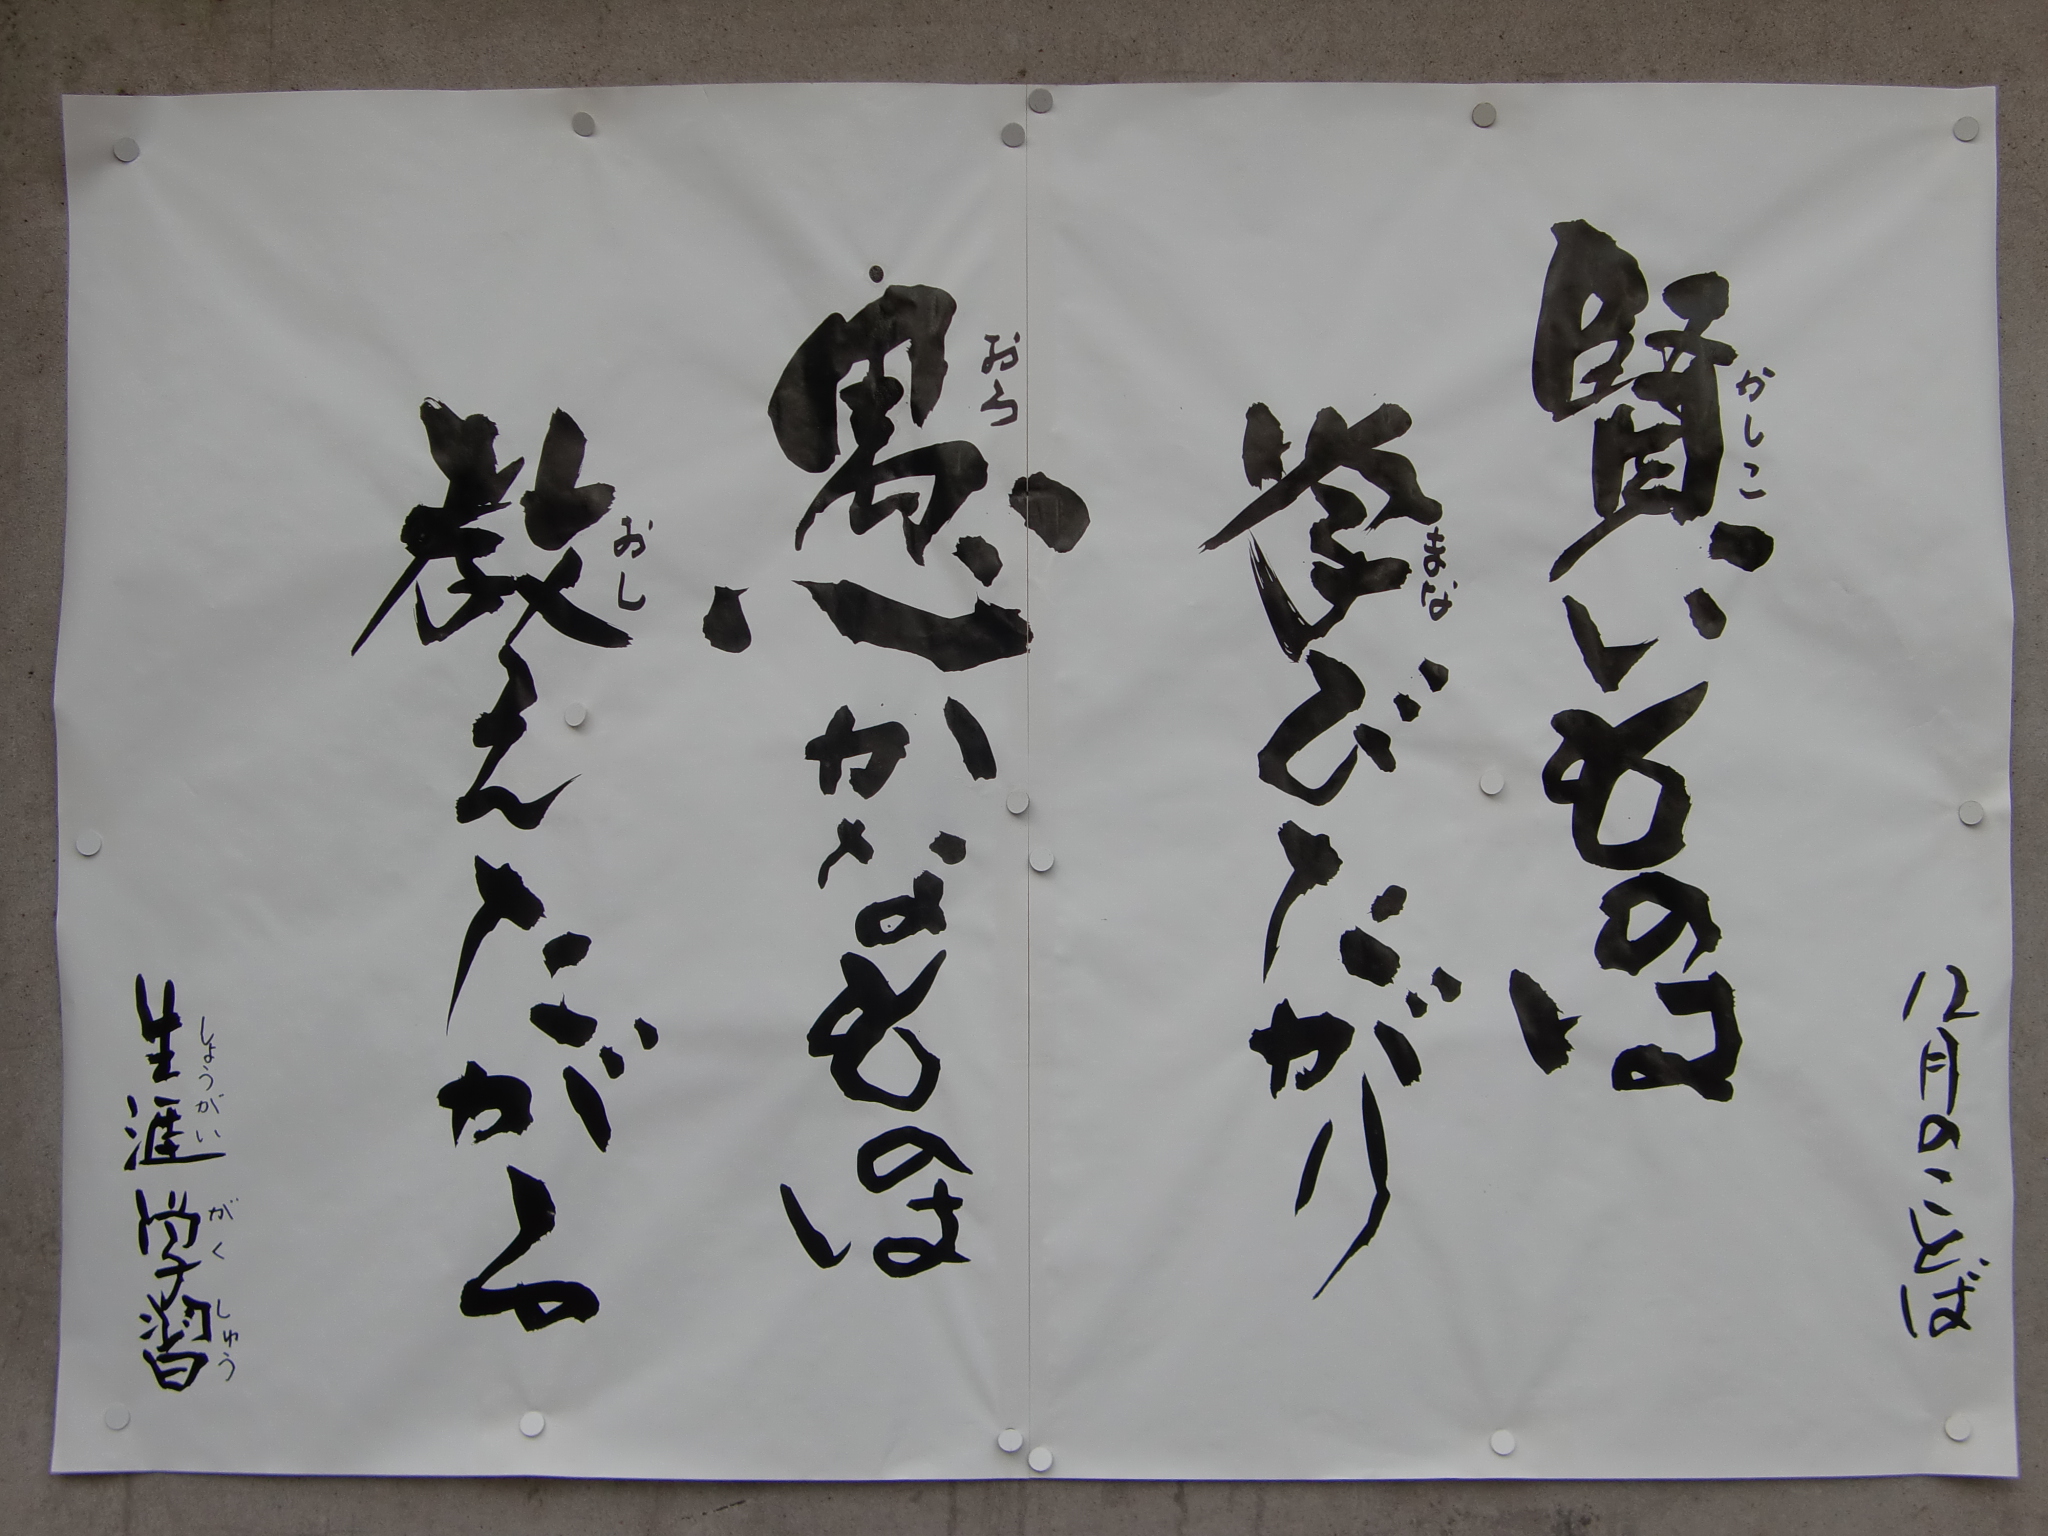 12月のことば
賢いものは
かしこ
学びたがり
まな
愚かなものは
おろ
教えたがる
おし
生涯学習
しょうがいがくしゅう